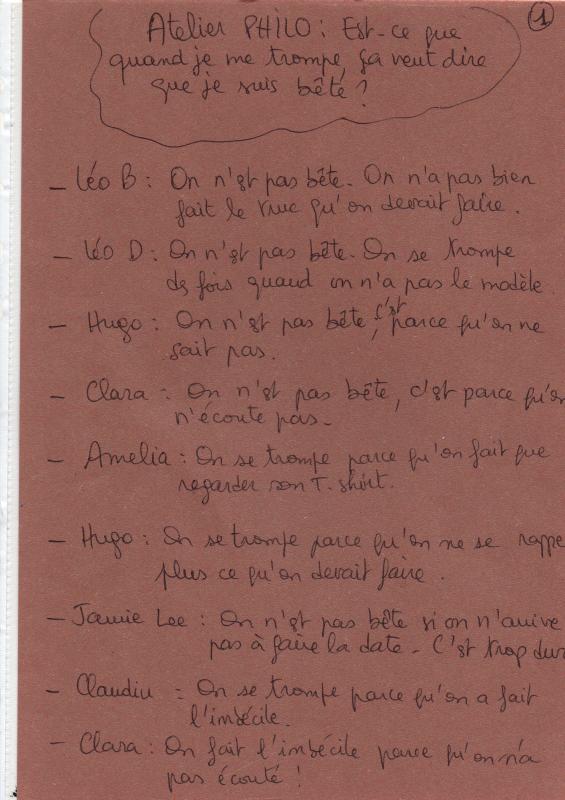 1
Atelier PHILO : Est-ce que
quand je me trompe, ça veut dire
que je suis bête ?
- Léo B : On n'est pas bête. On n'a pas bien
fait le truc qu'on devait faire.
- Léo D : On n'est pas bête. On se trompe
des fois quand on n'a pas le modèle
- Hugo : On n'est pas bête, c'est parce qu'on ne
sait pas.
- Clara : On n'est pas bête, c'est parce qu'on
n'écoute pas.
- Amelia : On se trompe parce qu'on fait que
regarder son T. shirt.
- Hugo : On se trompe parce qu'on ne se rappe
plus ce qu'on devait faire.
- Jamie Lee : On n'est pas bête si on n'arrive
pas à faire la date. C'est trop dur
- Claudiu : On se trompe parce qu'on a fait
l'imbécile.
- Clara : On fait l'imbécile parce qu'on n'a
pas écouté !